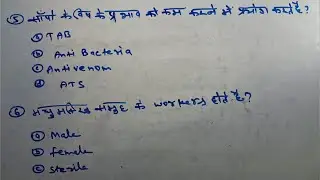 ⑤ साँपों के विष के प्रभाव को कम करने में प्रयोग करते हैं?
ⓐ TAB
ⓑ Anti Bacteria
ⓒ Antivenom
ⓓ ATS
⑥ समूह के workers होते हैं?
ⓐ Male
ⓑ female
ⓒ sterile